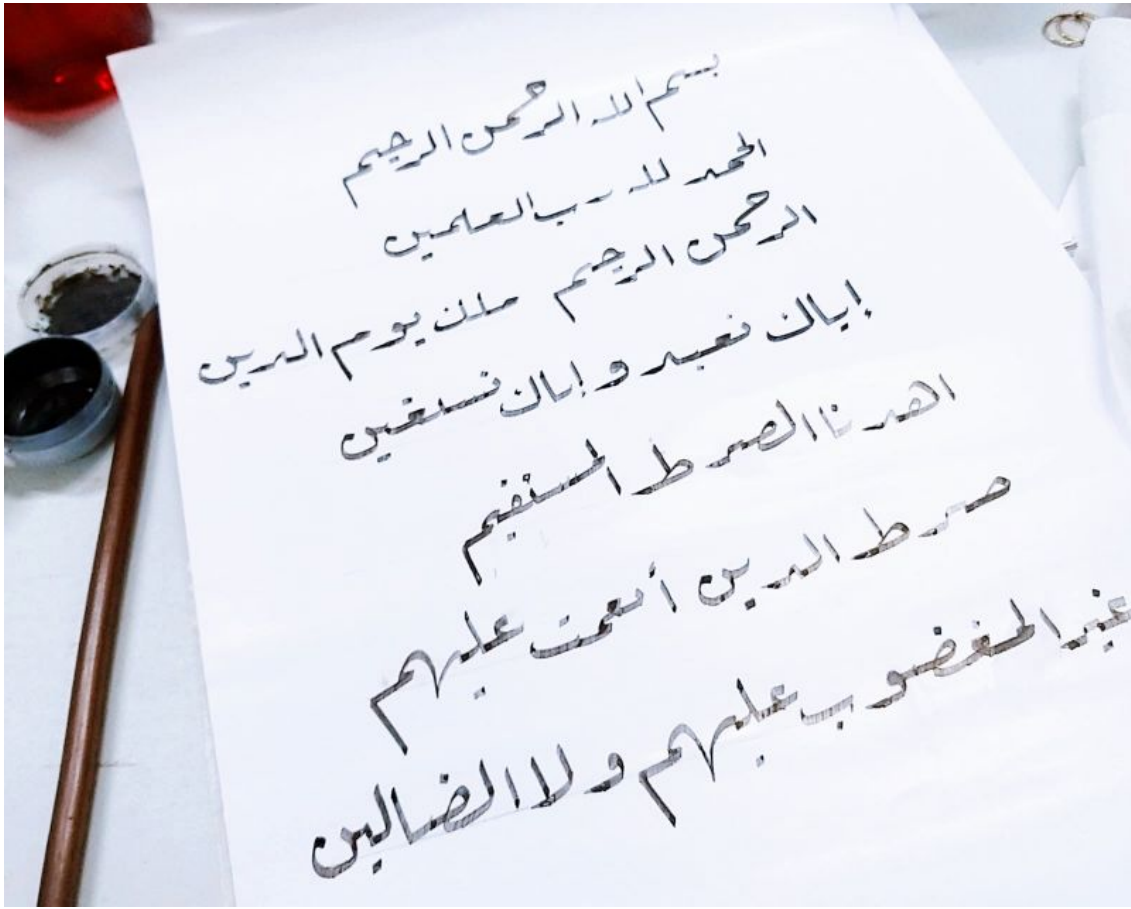 بسم الله الرحمن الرحيم
الحمد لله رب العلمين
الرحمن الرحيم ملك يوم الدين
إياك نعبد وإياك نستعين
اهدنا الصرط المستقيم
صرط الذين أنعمت عليهم
غير المغضوب عليهم ولا الضالين